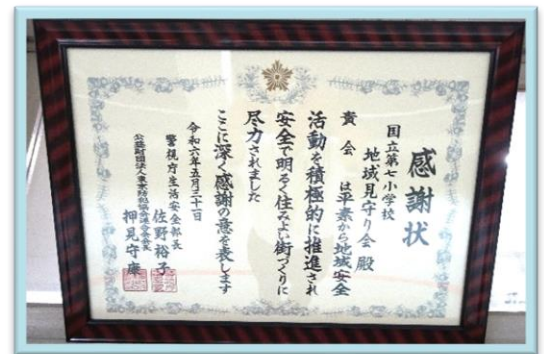 感謝状
国立第七小学校
地域見守り会 殿
貴会は平素から地域安全
活動を積極的に推進され
安全で明るく住みよい街づくりに
尽力されました
ここに深く感謝の意を表します
令和六年五月二十一日
警視庁生活安全部長
佐野裕子
公益財団法人東京防犯協会連合会会長
押見守康